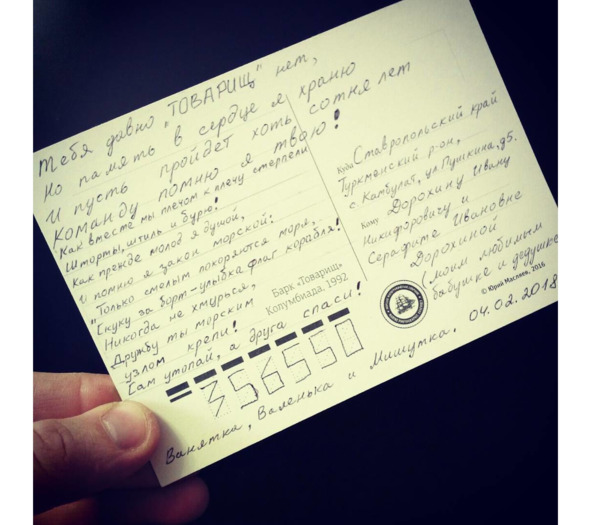 Тебя давно "ТОВАРИЩ" нет,
Но память в сердце я храню
И пусть пройдет хоть сотня лет
Команду помню я твою!
Как вместе мы плечом к плечу стерпели
Штормы, штиль и бурю!
Как прежде молод я душой,
И помню я закон морской:
"Только смелым покорятся моря,
Скуку за борт-улыбка флаг корабля!
Никогда не хмурься,
Дружбу ты морским
узлом крепи!
Сам утопай, а друга спаси!
Барк «Товарищ»
Колумбиада, 1992
356550
Ванятка, Валенька и Мишутка.
Куда Ставропольский край
Туркменский р-он,
с Камбулат, ул Пушкина, д5.
Кому Дорохину Ивану
Никифоровичу и
Серафиме Ивановне
Дорохиной
(моим любимым
бабушке и дедушке
© Юрий Масляев, 2016
04.02.2018